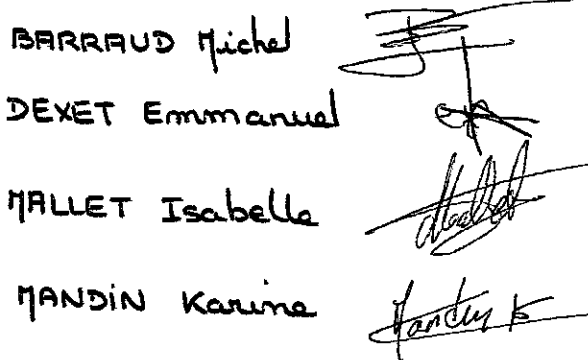 BARRAUD Michel
DEXET Emmanuel
MALLET Isabelle
MANDIN Karine Mandin K